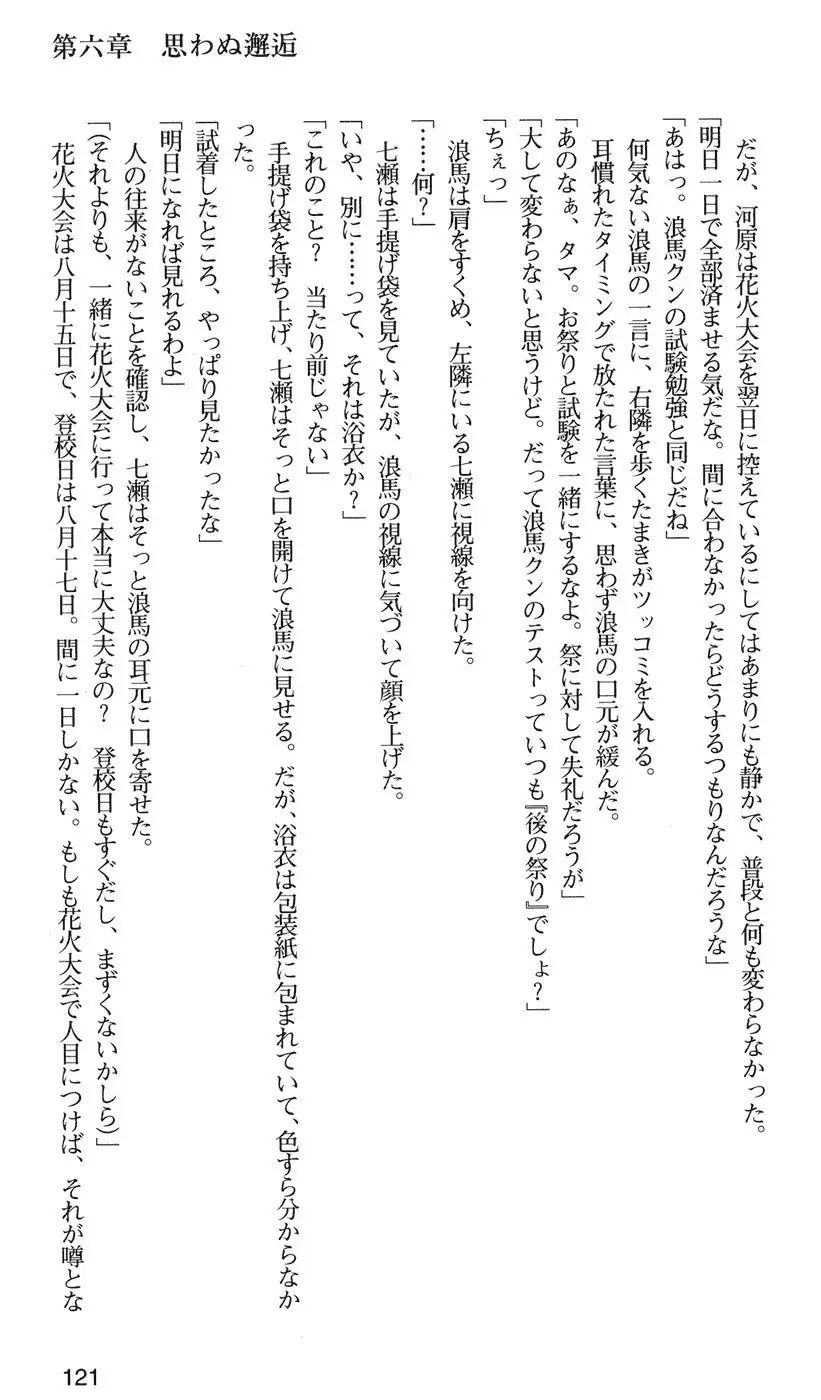 第六章　思わぬ邂逅
　だが、河原は花火大会を翌日に控えているにしてはあまりにも静かで、普段と何も変わらなかった。
「明日一日で全部済ませる気だな。間に合わなかったらどうするつもりなんだろうな」
「あはっ。浪馬クンの試験勉強と同じだね」
　何気ない浪馬の一言に、右隣を歩くたまきがツッコミを入れる。
　耳慣れたタイミングで放たれた言葉に、思わず浪馬の口元が緩んだ。
「あのなぁ、タマ。お祭りと試験を一緒にするなよ。祭に対して失礼だろうが」
「大して変わらないと思うけど。だって浪馬クンのテストっていつも『後の祭り』でしょ？」
「ちぇっ」
　浪馬は肩をすくめ、左隣にいる七瀬に視線を向けた。
「……何？」
　七瀬は手提げ袋を見ていたが、浪馬の視線に気づいて顔を上げた。
「いや、別に……って、それは浴衣か？」
「これのこと？　当たり前じゃない」
　手提げ袋を持ち上げ、七瀬はそっと口を開けて浪馬に見せる。だが、浴衣は包装紙に包まれていて、色すら分からなか
った。
「試着したところ、やっぱり見たかったな」
「明日になれば見れるわよ」
　人の往来がないことを確認し、七瀬はそっと浪馬の耳元に口を寄せた。
「（それよりも、一緒に花火大会に行って本当に大丈夫なの？　登校日もすぐだし、まずくないかしら）」
　花火大会は八月十五日で、登校日は八月十七日。間に一日しかない。もしも花火大会で人目につけば、それが噂とな
121